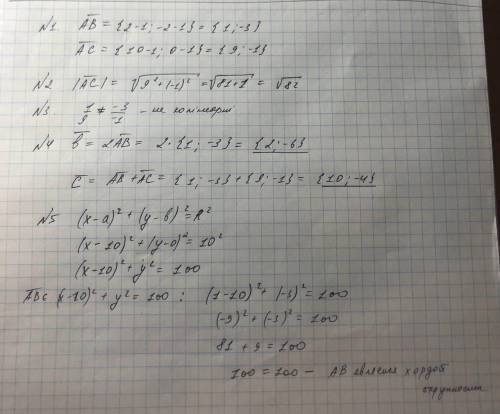 №1 AB = {2-1; -2-1} = {1; -3}
AC = {10-1; 0-1} = {9; -1}
№2 |AC| = √9²+(-1)² = √81+1 = √82
№3 1/9 ≠ -3/-1 - не колінеарні
№4 b = 2AB = 2·{1; -3} = {2; -6}
C = AB + AC = {1; -3} + {9; -1} = {10; -4}
№5 (x-a)² + (y-b)² = R²
(x-10)² + (y-0)² = 10²
(x-10)² + y² = 100
(x-10)² + y² = 100 : (1-10)² + (-3)² = 100
(-9)² + (-3)² = 100
81 + 9 = 100
100 = 100 - AB является хордой
окружности